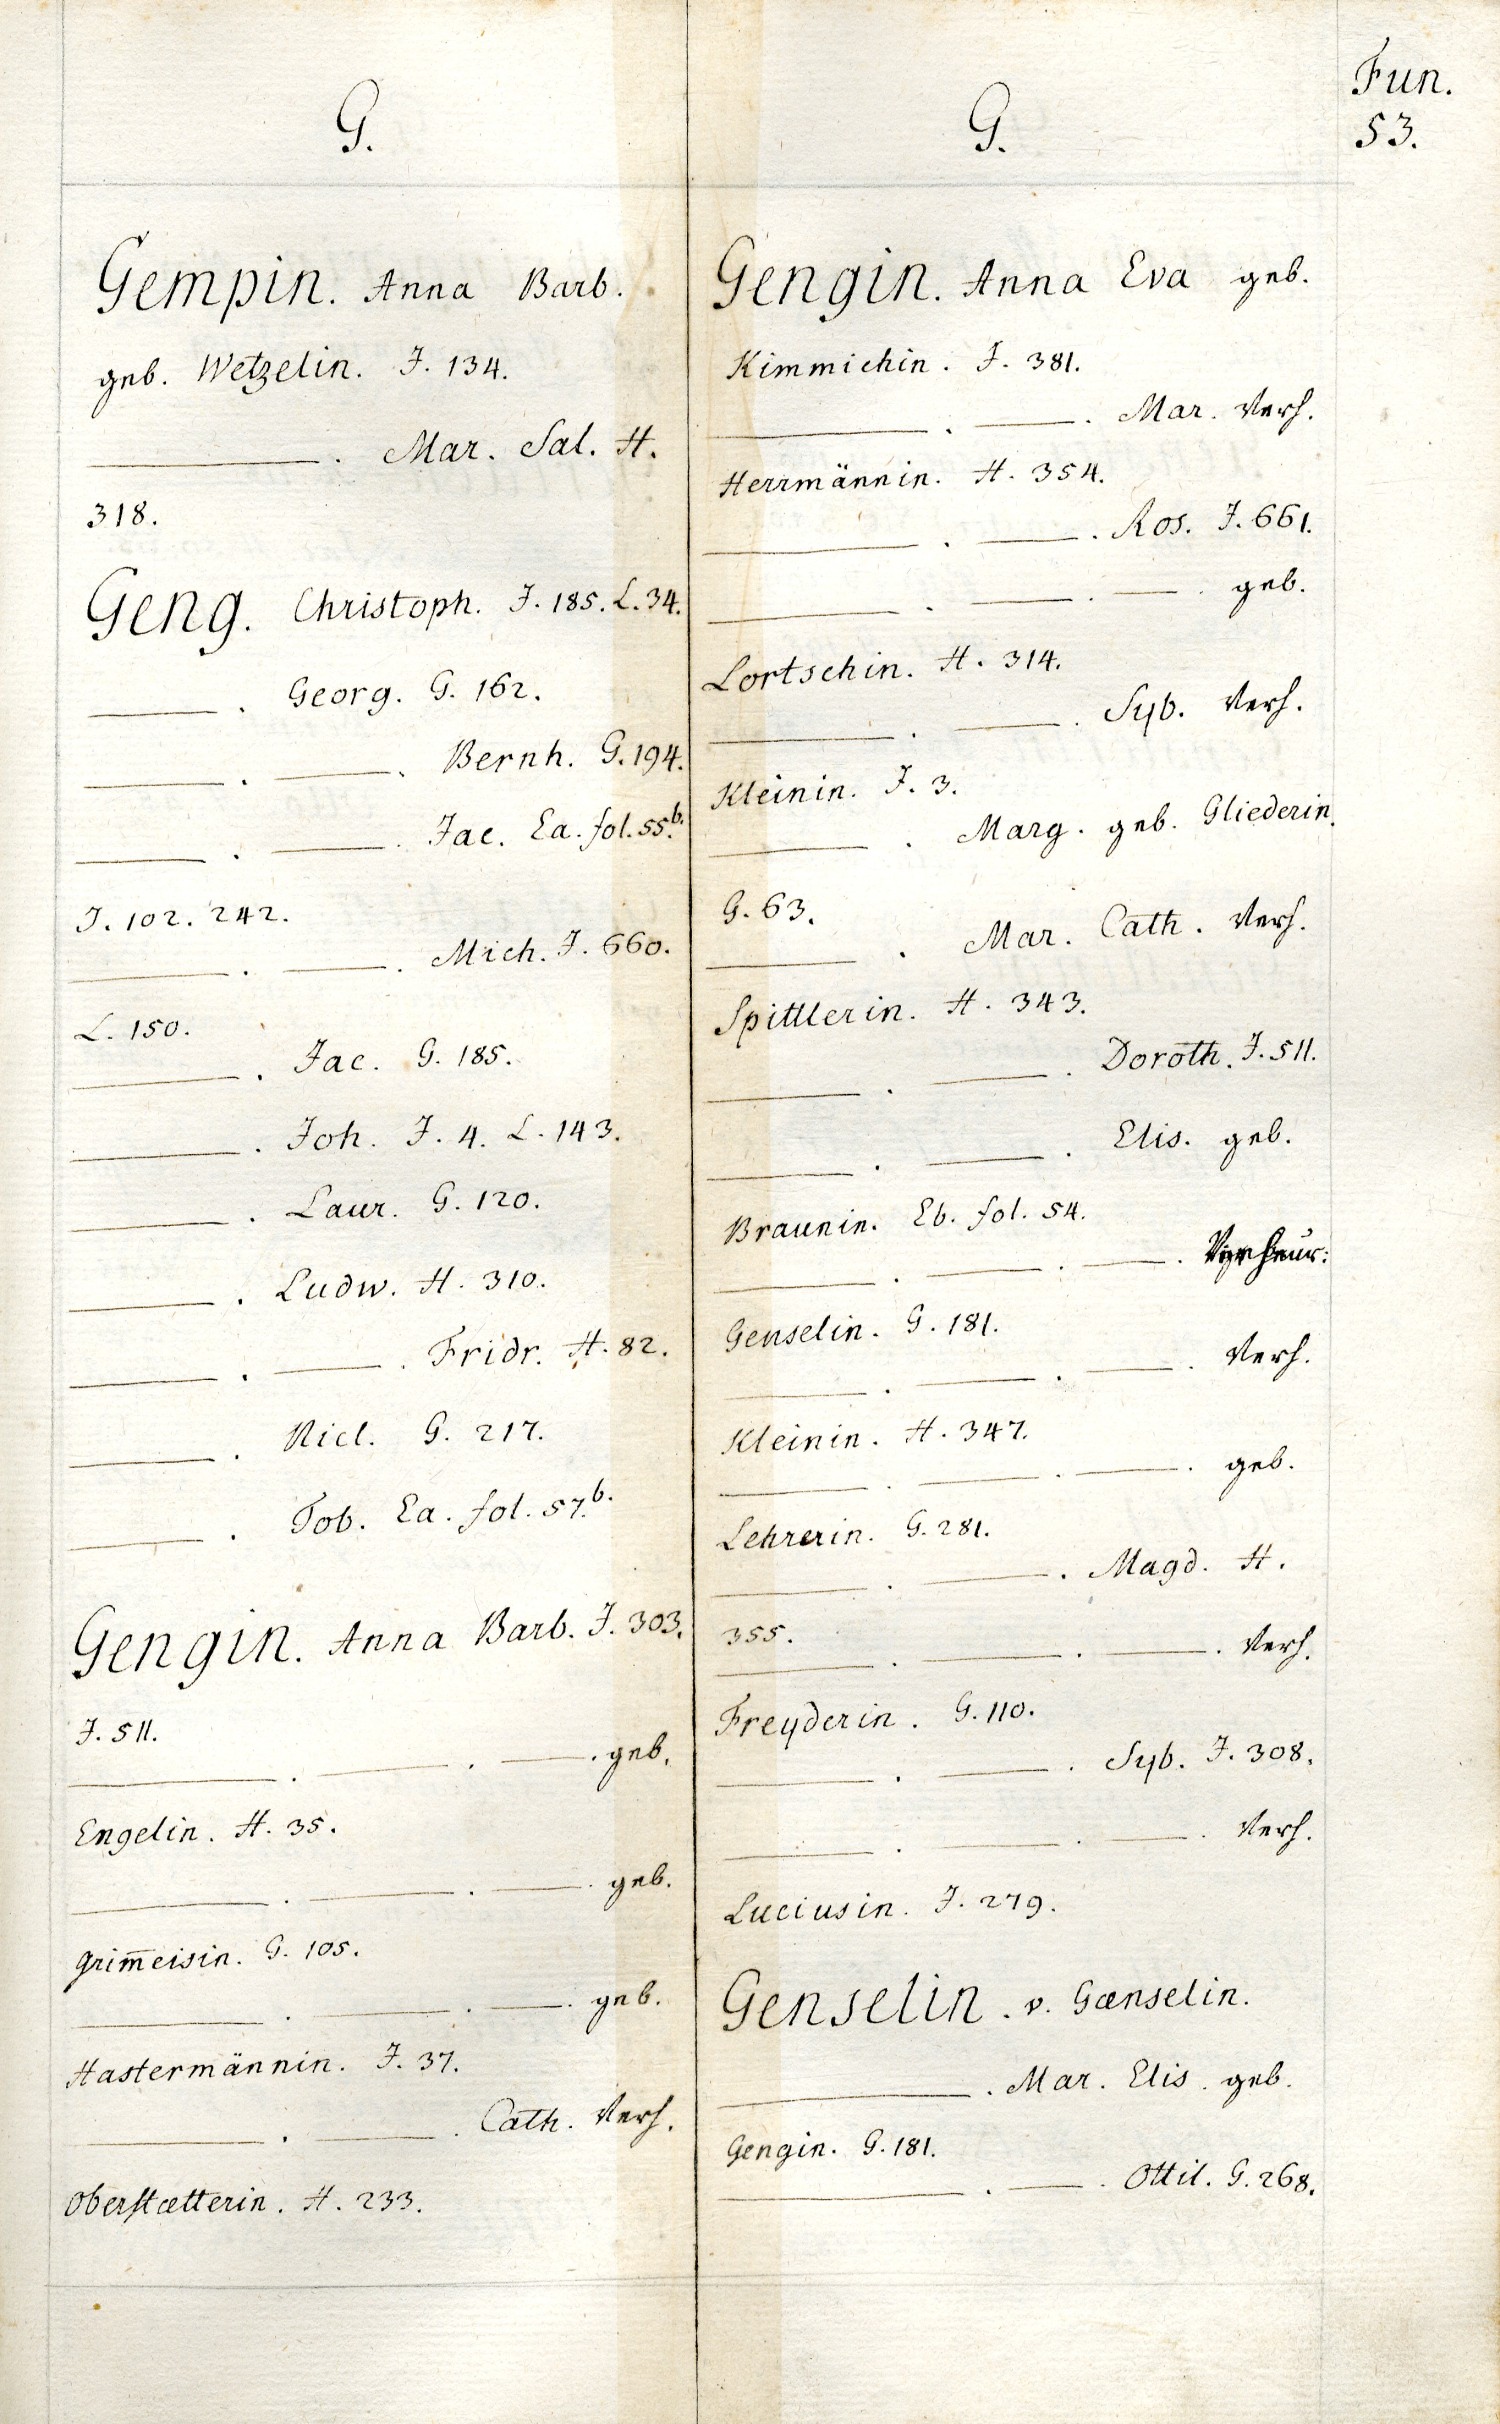 Fun.
53.
G.
Gempin. Anna Barb.
geb. Wetzelin. J. 134.
———. Mar. Sal. H.
318.
Geng. Christoph. J. 185. L. 34.
———. Georg. G. 162.
———. ———. Bernh. G. 194.
———. ———. Jac. Ea. fol. 55.b.
J. 102. 242.
———. ———. Mich. J. 660.
L. 150.
———. Jac. G. 185.
———. Joh. J. 4. L. 143.
———. Laur. G. 120.
———. Ludw. H. 310.
———. ———. Fridr. H. 82.
———. Nicl. G. 217.
———. Tob. Ea. fol. 57.b.
Gengin. Anna Barb. J. 303.
J. 511.
———. ———. ———. geb.
Engelin. H. 35.
———. ———. ———. geb.
Grim̅eisin. G. 105.
———. ———. ———. geb.
Hastermännin. J. 37.
———. ———. Cath. Verh.
Oberstætterin. H. 233.
G.
Gengin. Anna Eva geb.
Kimmichin. J. 381.
———. ———. Mar. Verh.
Herrmännin. H. 354.
———. ———. Ros. J. 661.
———. ———. ———. geb.
Lortschin. H. 314.
———. ———. Syb. Verh.
Kleinin. J. 3.
———. Marg. geb. Gliederin.
G. 63.
———. Mar. Cath. Verh.
Spittlerin. H. 343.
———. ———. Doroth. J. 511.
———. ———. Elis. geb.
Braunin. Eb. fol. 54.
———. ———. ———.
Genselin. G. 181.
———. ———. ———. Verh.
Kleinin. H. 347.
———. ———. ———. geb.
Lehrerin. G. 281.
———. ———. Magd. H.
355.
———. ———. ———. Verh.
Freyderin. G. 110.
———. ———. Syb. J. 308.
———. ———. ———. Verh.
Luciusin. J. 279.
Genselin. v. Gænselin.
———. Mar. Elis. geb.
Gengin. G. 181.
———. ———. Ottil. G. 268.